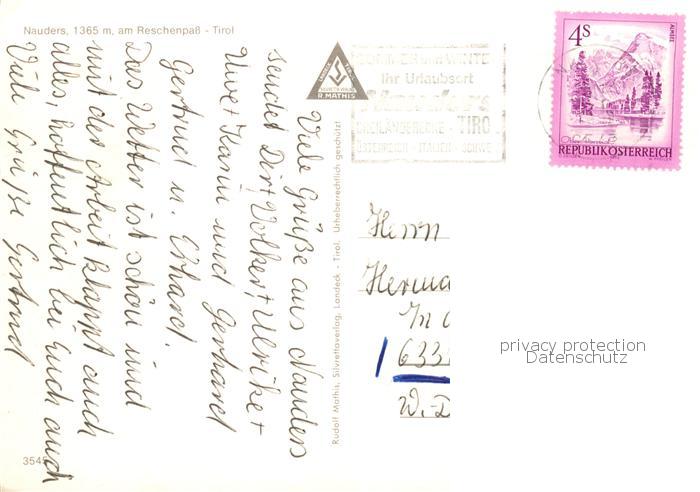 Nauders, 1365 m, am Reschenpaß - Tirol
Viele Grüße aus Nauders
sendet Dir + Volker + Ulrike +
Uwe + Karin und Gerhard
Gertrud u. Erhard.
Das Wetter ist schön und
mit der Arbeit klappt auch
alles, hoffentlich bei Euch auch
Viele Grüße Gertrud
3545
R. MATHIS
Rudolf Mathis, Silvrettaverlag, Landeck - Tirol. Urheberrechtlich geschützt!
SOMMER UND WINTER
Ihr Urlaubsort
Nauders
DREILÄNDERECKE - TIROL
ÖSTERREICH - ITALIEN - SCHWEIZ
4S
ALMSEE
REPUBLIK ÖSTERREICH
Herrn
Herma
In
633
W.-D
privacy protection
Datenschutz